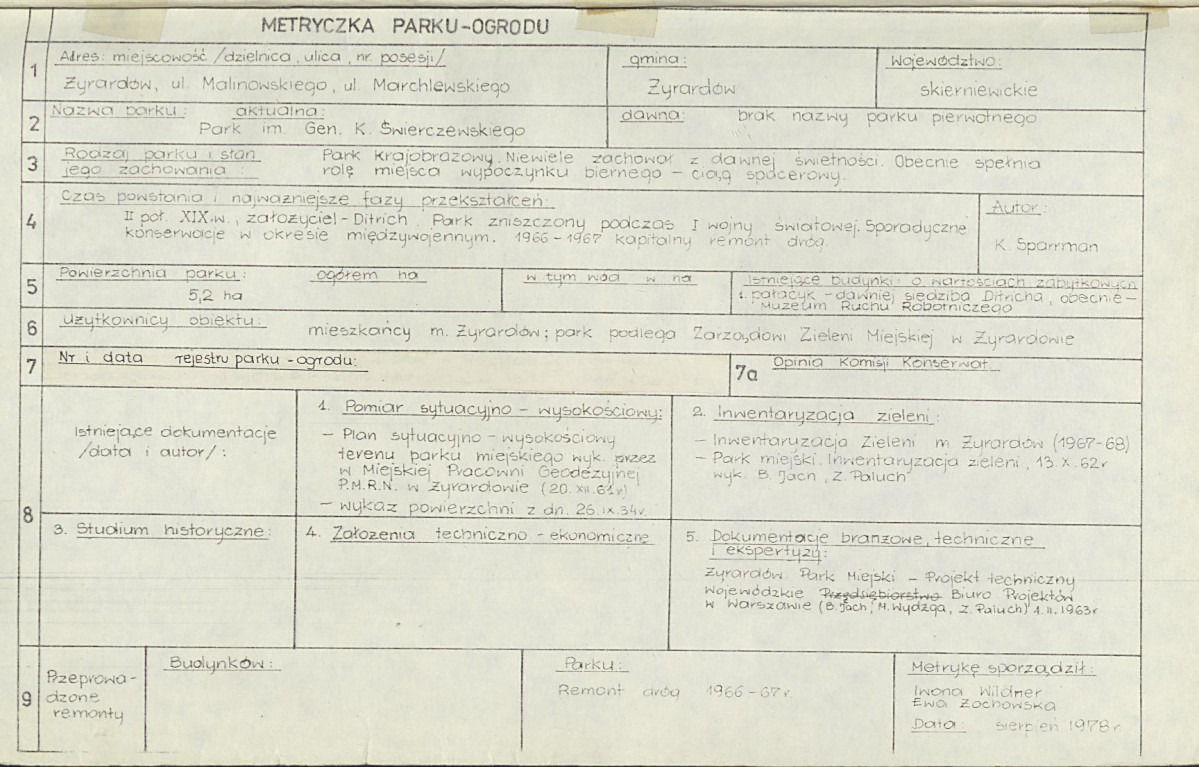 METRYCZKA PARKU-OGRODU
1
Adres: miejscowość /dzielnica, ulica, nr. posesji/
Żyrardów, ul. Malinowskiego, ul. Marchlewskiego
gmina:
Żyrardów
Województwo:
skierniewickie
2
Nazwa parku: aktualna:
Park im. Gen. K. Świerczewskiego
dawna: brak nazwy parku pierwotnego
3
Rodzaj parku i stan
jego zachowania
Park krajobrazowy. Niewiele zachował z dawnej świetności. Obecnie spełnia
rolę miejsca wypoczynku biernego - ciąg spacerowy.
4
Czas powstania i najważniejsze fazy przekształceń:
II poł. XIX.w., założyciel - Ditrich. Park zniszczony podczas I wojny światowej. Sporadyczne
konserwacje w okresie międzywojennym. 1966-1967 kapitalny remont dróg.
Autor:
K. Sparrman
5
Powierzchnia parku: ogółem ha
5,2 ha
w tym wód w ha
Istniejące budynki: o wartościach zabytkowych
1. pałacyk - dawniej siedziba Ditricha, obecnie -
Muzeum Ruchu Robotniczego
6
Użytkownicy obiektu: mieszkańcy m. Żyrardów; park podlega Zarządowi Zieleni Miejskiej w Żyrardowie
7
Nr i data rejestru parku - ogrodu:
7a
Opinia Komisji Konserwat.
8
Istniejące dokumentacje
/data i autor/:
1. Pomiar sytuacyjno - wysokościowy:
- Plan sytuacyjno - wysokościowy
terenu parku miejskiego wyk. przez
w Miejskiej Pracowni Geodezyjnej
P.M.R.N. w Żyrardowie (20.XII.61r)
- wykaz powierzchni z dn. 26.IX.34r.
2. Inwentaryzacja zieleni:
- Inwentaryzacja Zieleni m Żyrardów (1967-68)
- Park miejski. Inwentaryzacja zieleni 13.X.62r
wyk. B. Jach, Z. Paluch
3. Studium historyczne:
4. Założenia techniczno - ekonomiczne
5. Dokumentacje branżowe, techniczne
i ekspertyzy:
Żyrardów. Park Miejski - Projekt techniczny
Wojewódzkie Przedsiębiorstwo Biuro Projektów
w Warszawie (B. Jach, M. Wydżga, Z. Paluch) 1.II.1963r
9
Przeprowa-
dzone
remonty
Budynków:
Parku:
Remont dróg 1966-67r
Metrykę sporządził:
Iwona Wildner
Ewa Żochowska
Data: sierpień 1978r